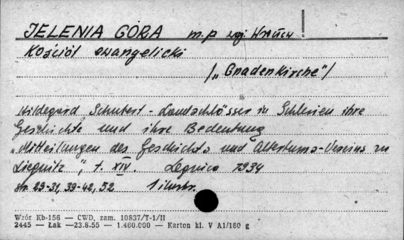 JELENIA GÓRA m.p.
Kościół ewangelicki
/„Gnadenkirche"/
Hildegard Schubert - Landschlösser in Schlesien ihre
Geschichte und ihre Bedeutung
„Mitteilungen des Geschichts und Altertums-Vereins zu
Liegnitz", t. XIV. Legnica 1934
str. 29-31, 39-42, 52 1 ilustr.
Wzór Kb-156 — CWD, zam. 10837/T-1/II
2445 — Łak —23.8.55 — 1.460.000 — Karton kl. V A1/180 g